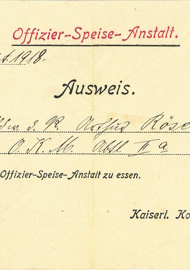 Offizier-Speise-Anstalt.
1918.
Ausweis.
d. R. Arthur Röse
O. K. M. Abt. II a
Offizier-Speise-Anstalt zu essen.
Kaiserl. Ko